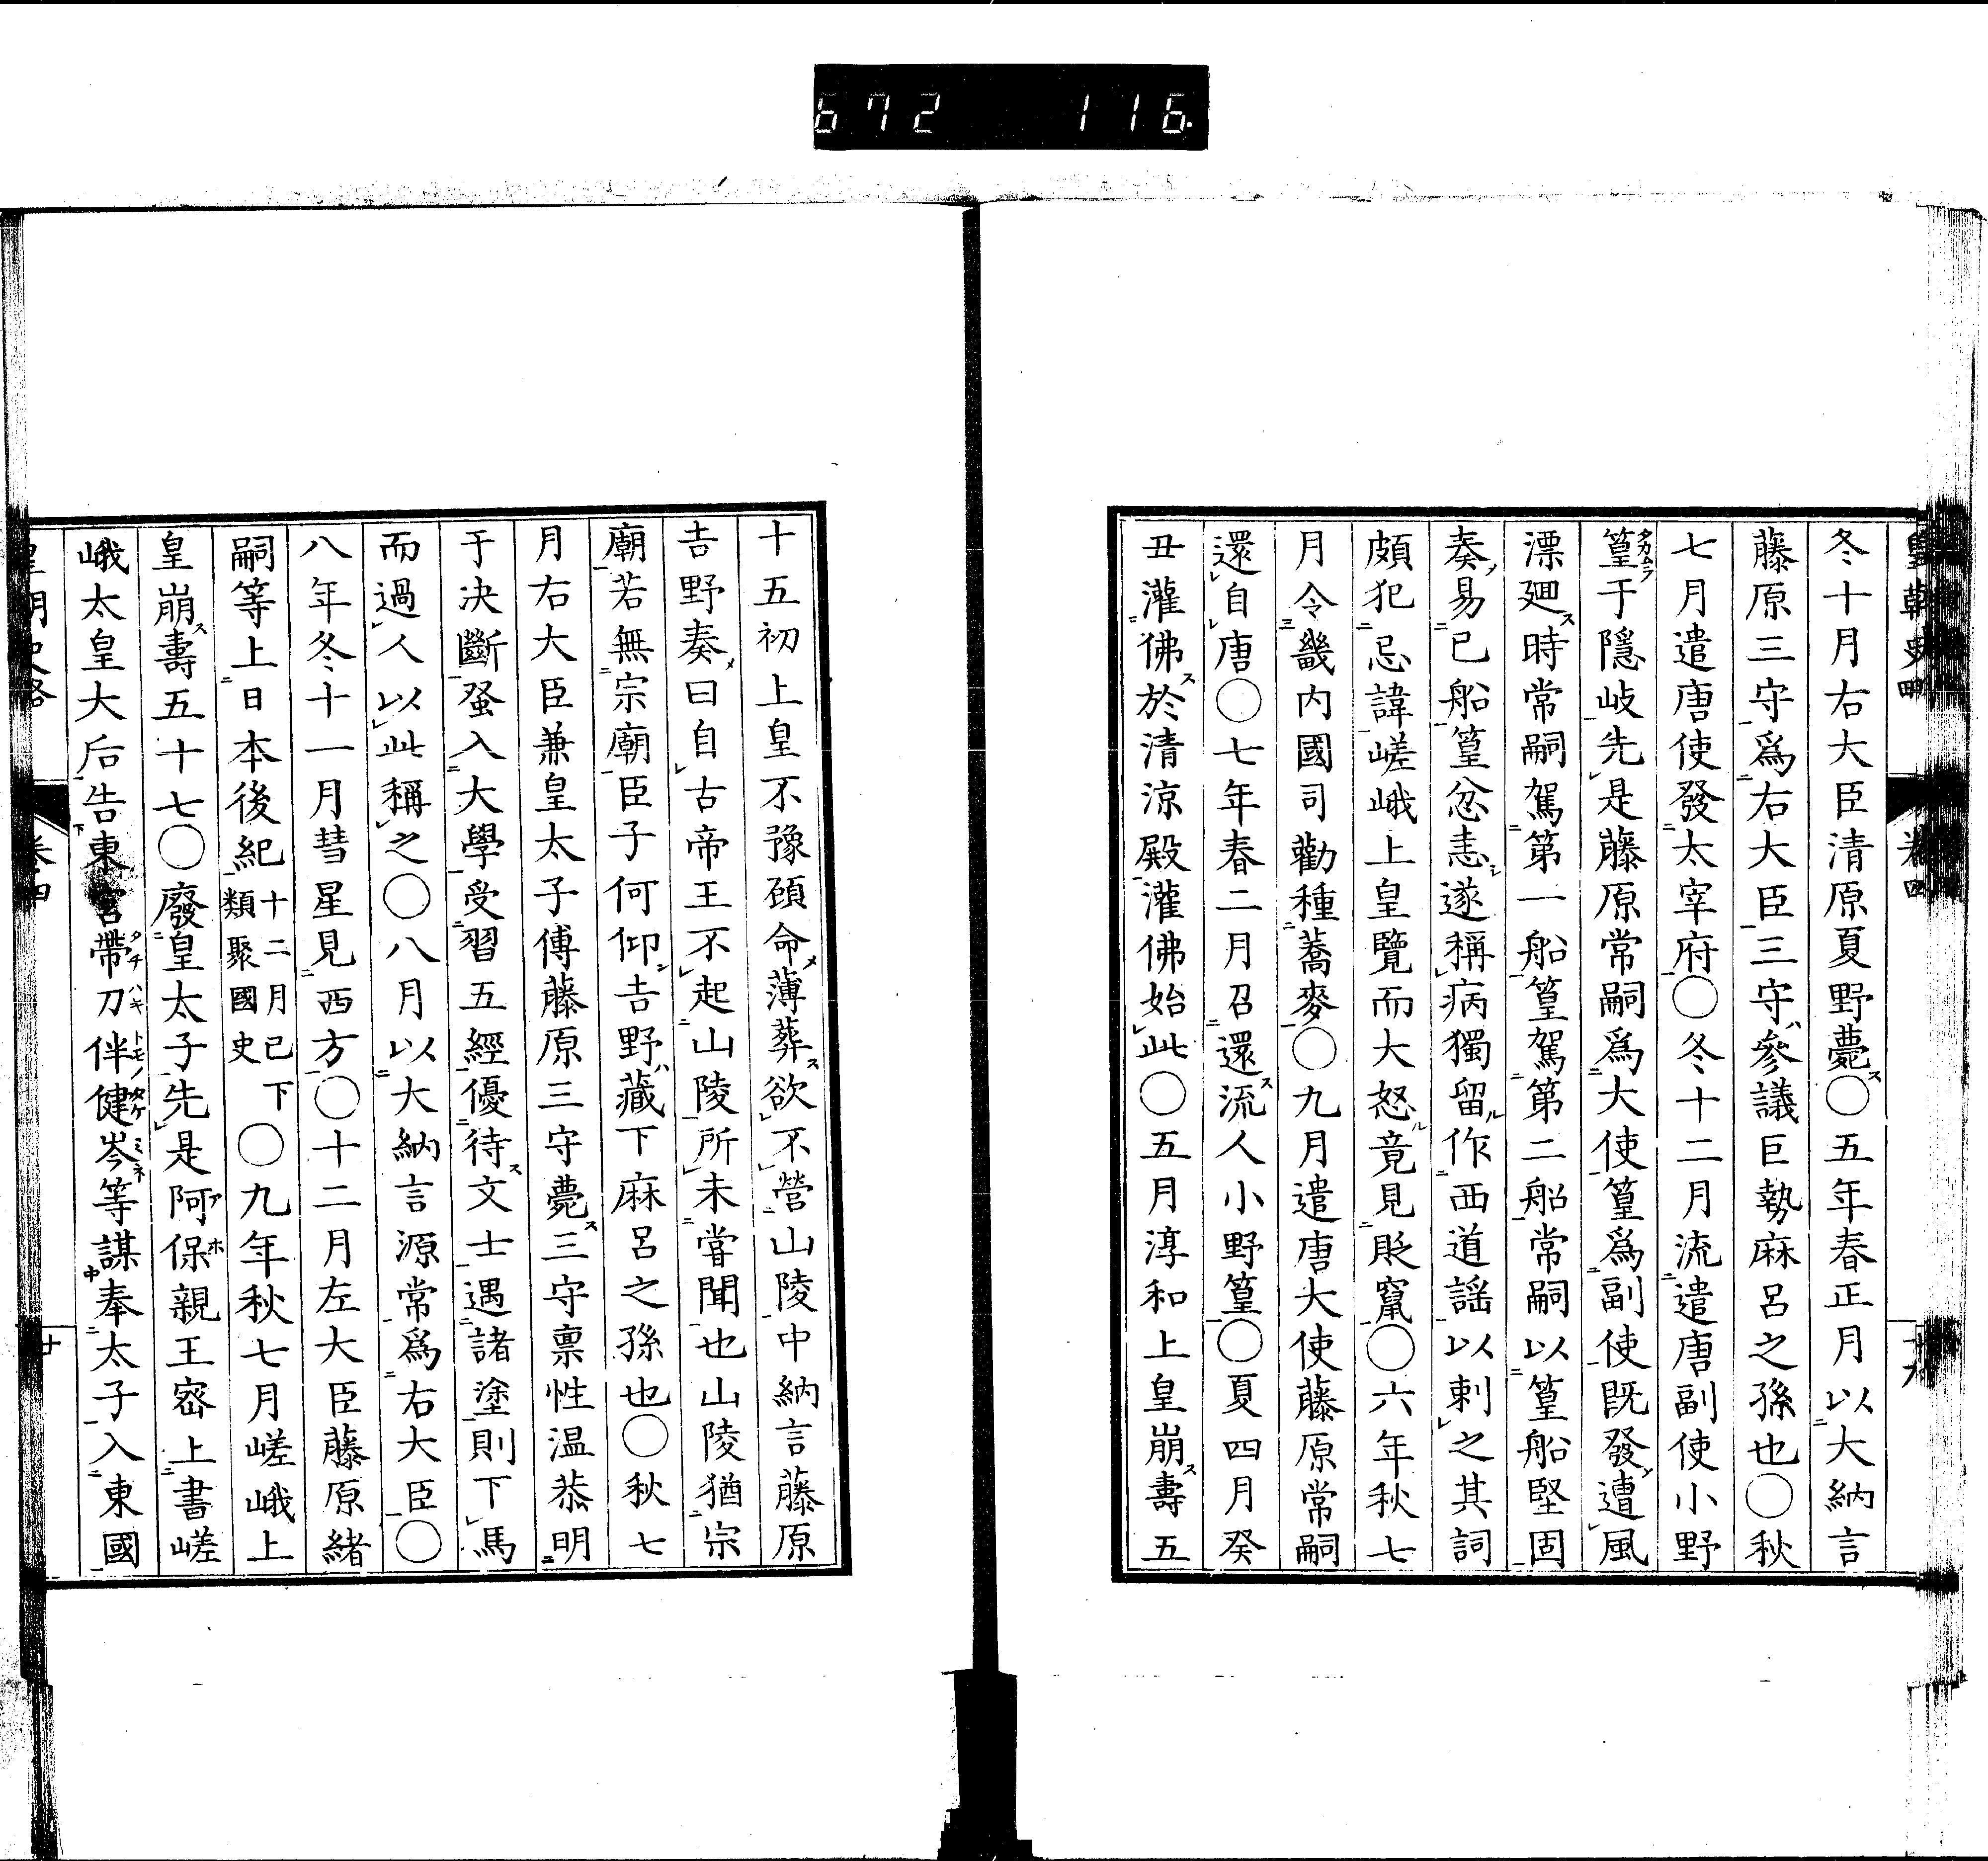 672 116.
冬十月右大臣清原夏野薨ス○五年春正月以大納言
藤原三守爲右大臣三守ハ參議巨勢麻呂之孫也○秋
七月遣唐使發太宰府○冬十二月流遣唐副使小野
篁タカムラ于隱岐先是藤原常嗣爲大使篁爲副使既發遭風
漂廻ス時常嗣駕第一船篁駕第二船常嗣以篁船堅固
奏易已船篁忿恚遂稱病獨留作西道謡以刺之其詞
頗犯忌諱嵯峨上皇覽而大怒竟見貶竄○六年秋七
月令畿内國司勸種蕎麥○九月遣唐大使藤原常嗣
還自唐○七年春二月召還流人小野篁○夏四月癸
丑灌佛ス於清涼殿灌佛始此○五月淳和上皇崩ス壽五
十五初上皇不豫頋命メ薄葬ス欲不營山陵中納言藤原
吉野奏メ曰自古帝王不起山陵所未甞聞也山陵猶宗
廟若無宗廟臣子何仰ン吉野ハ藏下麻呂之孫也○秋七
月右大臣兼皇太子傅藤原三守薨ス三守禀性温恭明
于决斷蚤入大學受習五經優待ス文士遇諸塗則下馬
而過人以此稱之○八月以大納言源常爲右大臣○
八年冬十一月彗星見西方○十二月左大臣藤原緒
嗣等上日本後紀十二月已下類聚國史○九年秋七月嵯峨上
皇崩ス壽五十七○廢皇太子先是阿ア保ホ親王宻上書嵯
峨太皇大后告東宮帶刀タチハキ伴トモノ健岑タケミネ等謀奉太子入東國
卷四
廿